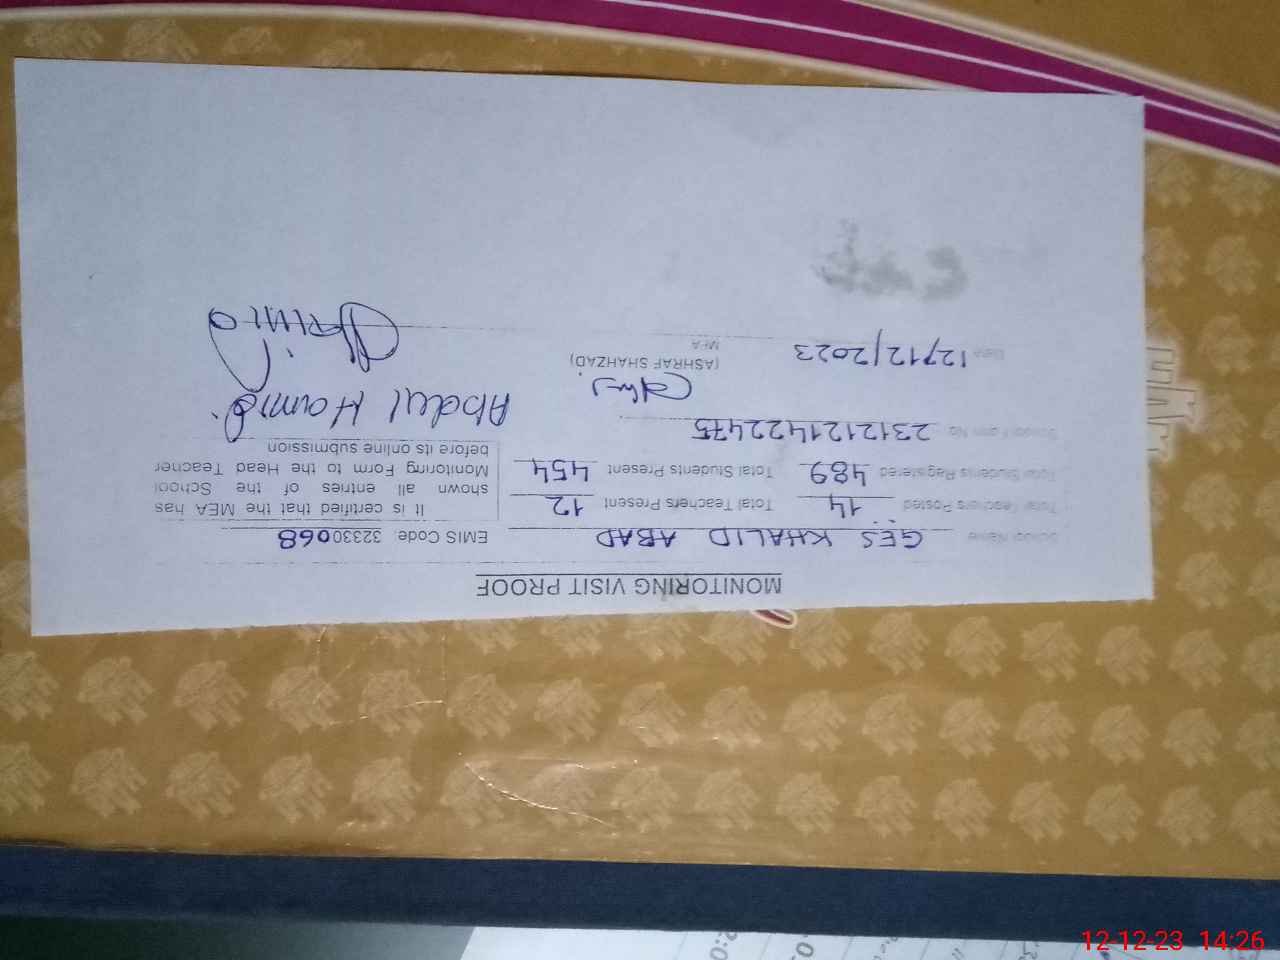 MONITORING VISIT PROOF
School Name GES KHALID ABAD EMIS Code: 32330068
Total Teachers Posted 14 Total Teachers Present 12
Total Students Registered 489 Total Students Present 454
School Form No. 2312121422475
It is certified that the MEA has
shown all entries of the School
Monitoring Form to the Head Teacher
before its online submission
Abdul Hamid
(ASHRAF SHAHZAD)
MEA
Date 12/12/2023
12-12-23 14:26